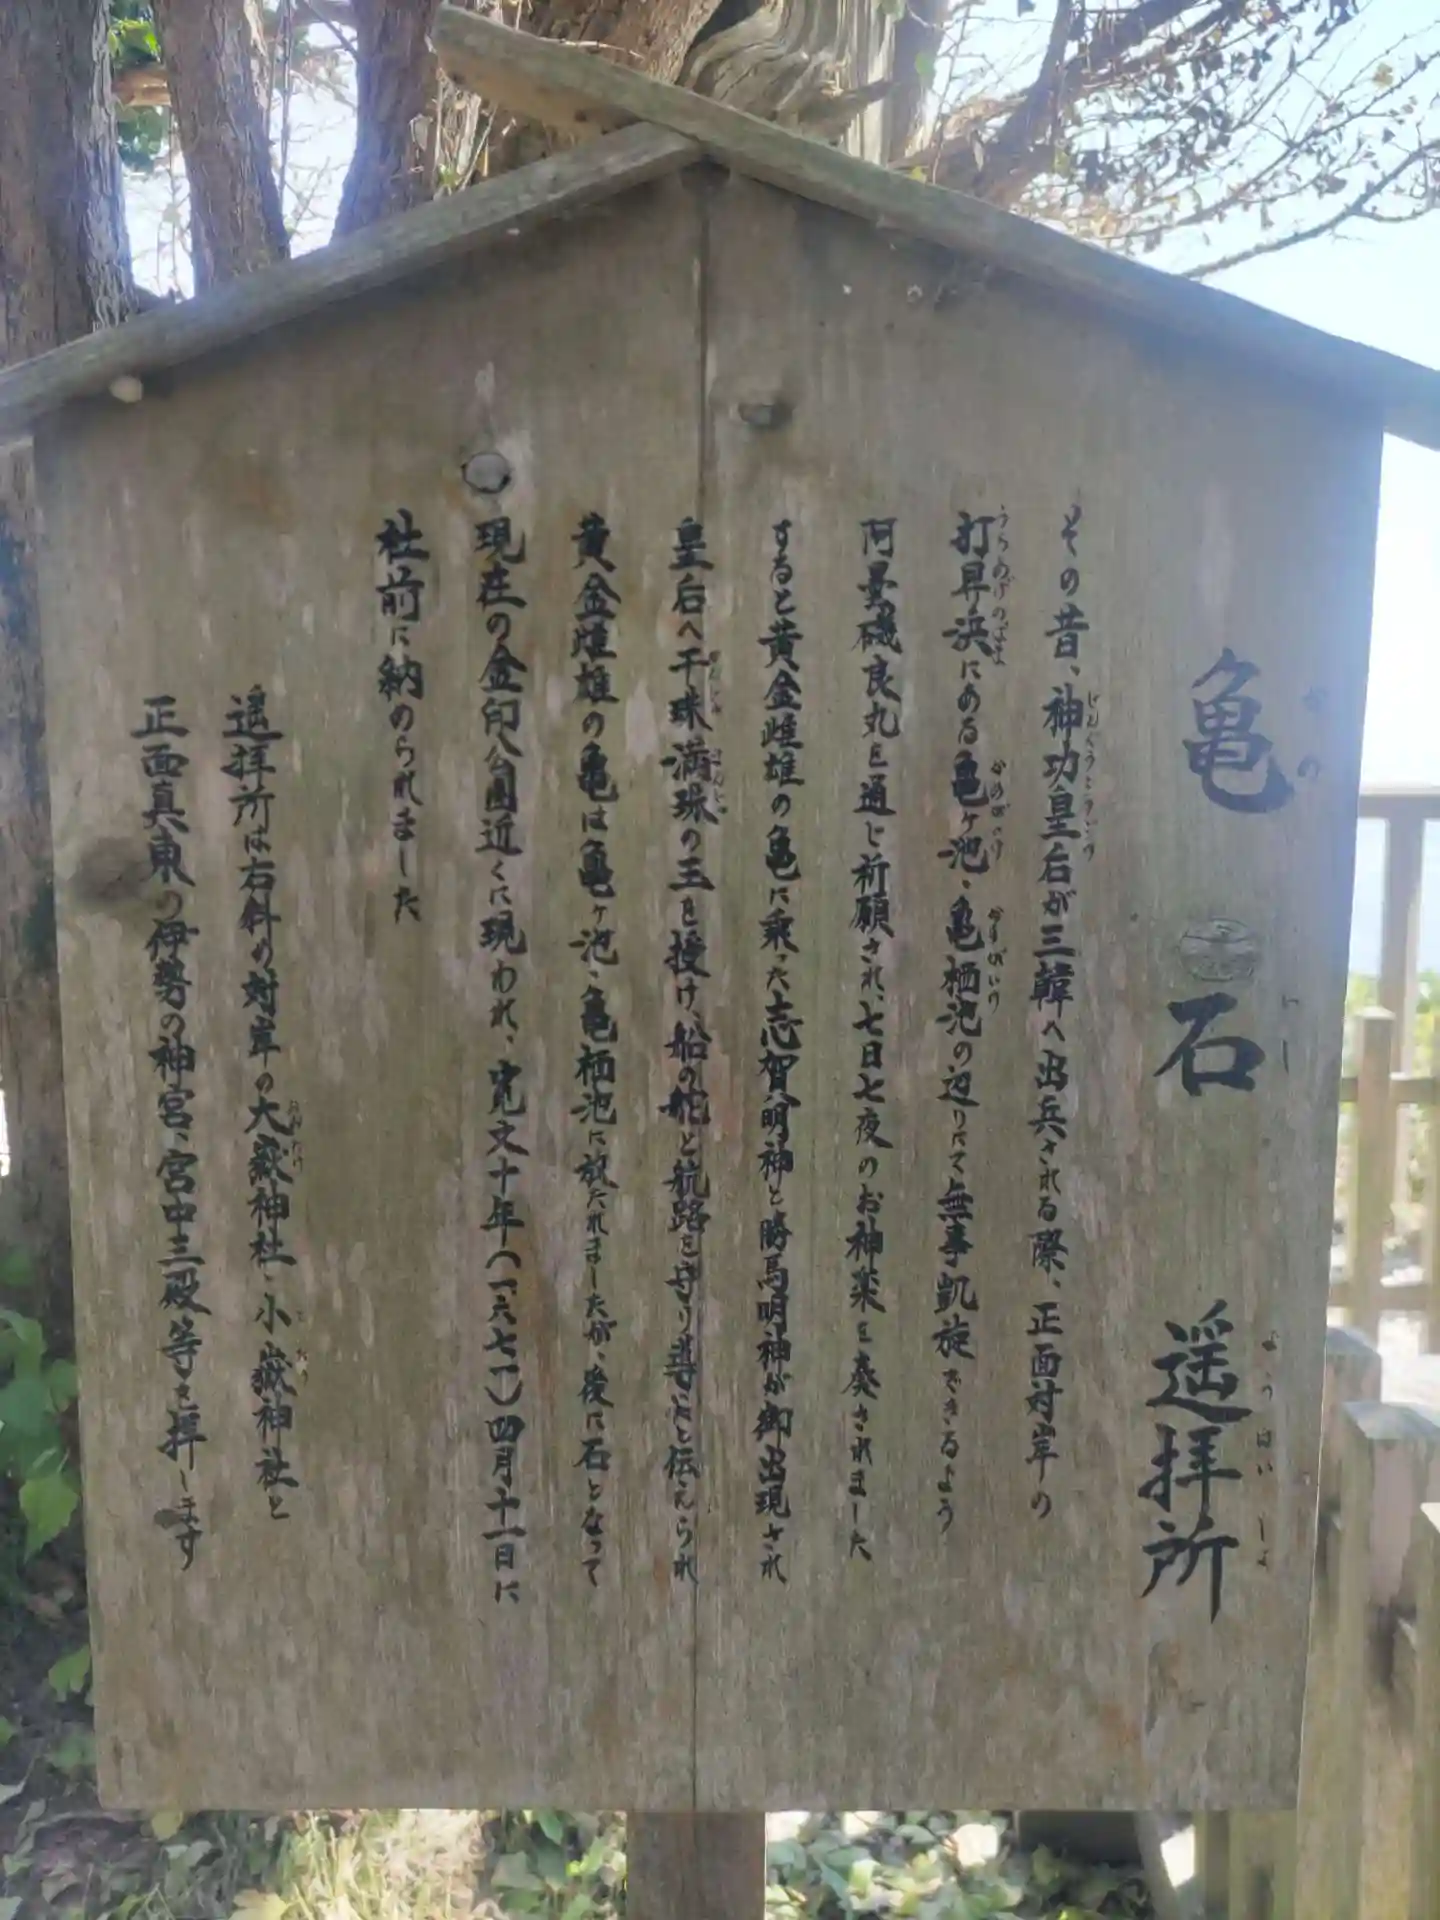 亀石 遥拝所
その昔、神功皇后が三韓へ出兵される際、正面対岸の
打昇浜にある亀ヶ池、亀栖池の辺りにて無事凱旋できるよう
阿曇磯良丸を通じ祈願され、七日七夜のお神楽を奏されました
すると黄金雌雄の亀に乗った志賀明神と勝馬明神が御出現され
皇后へ干珠満珠の玉を授け、船の舵と航路を守り導いたと伝えられ
黄金雌雄の亀は亀ヶ池、亀栖池に放たれましたが、後に石となって
現在の金印公園近くに現われ、寛文十年(一六七一)四月十一日に
社前に納められました
遥拝所は右斜め対岸の大嶽神社、小嶽神社と
正面真東の伊勢の神宮、宮中三殿等を拝します